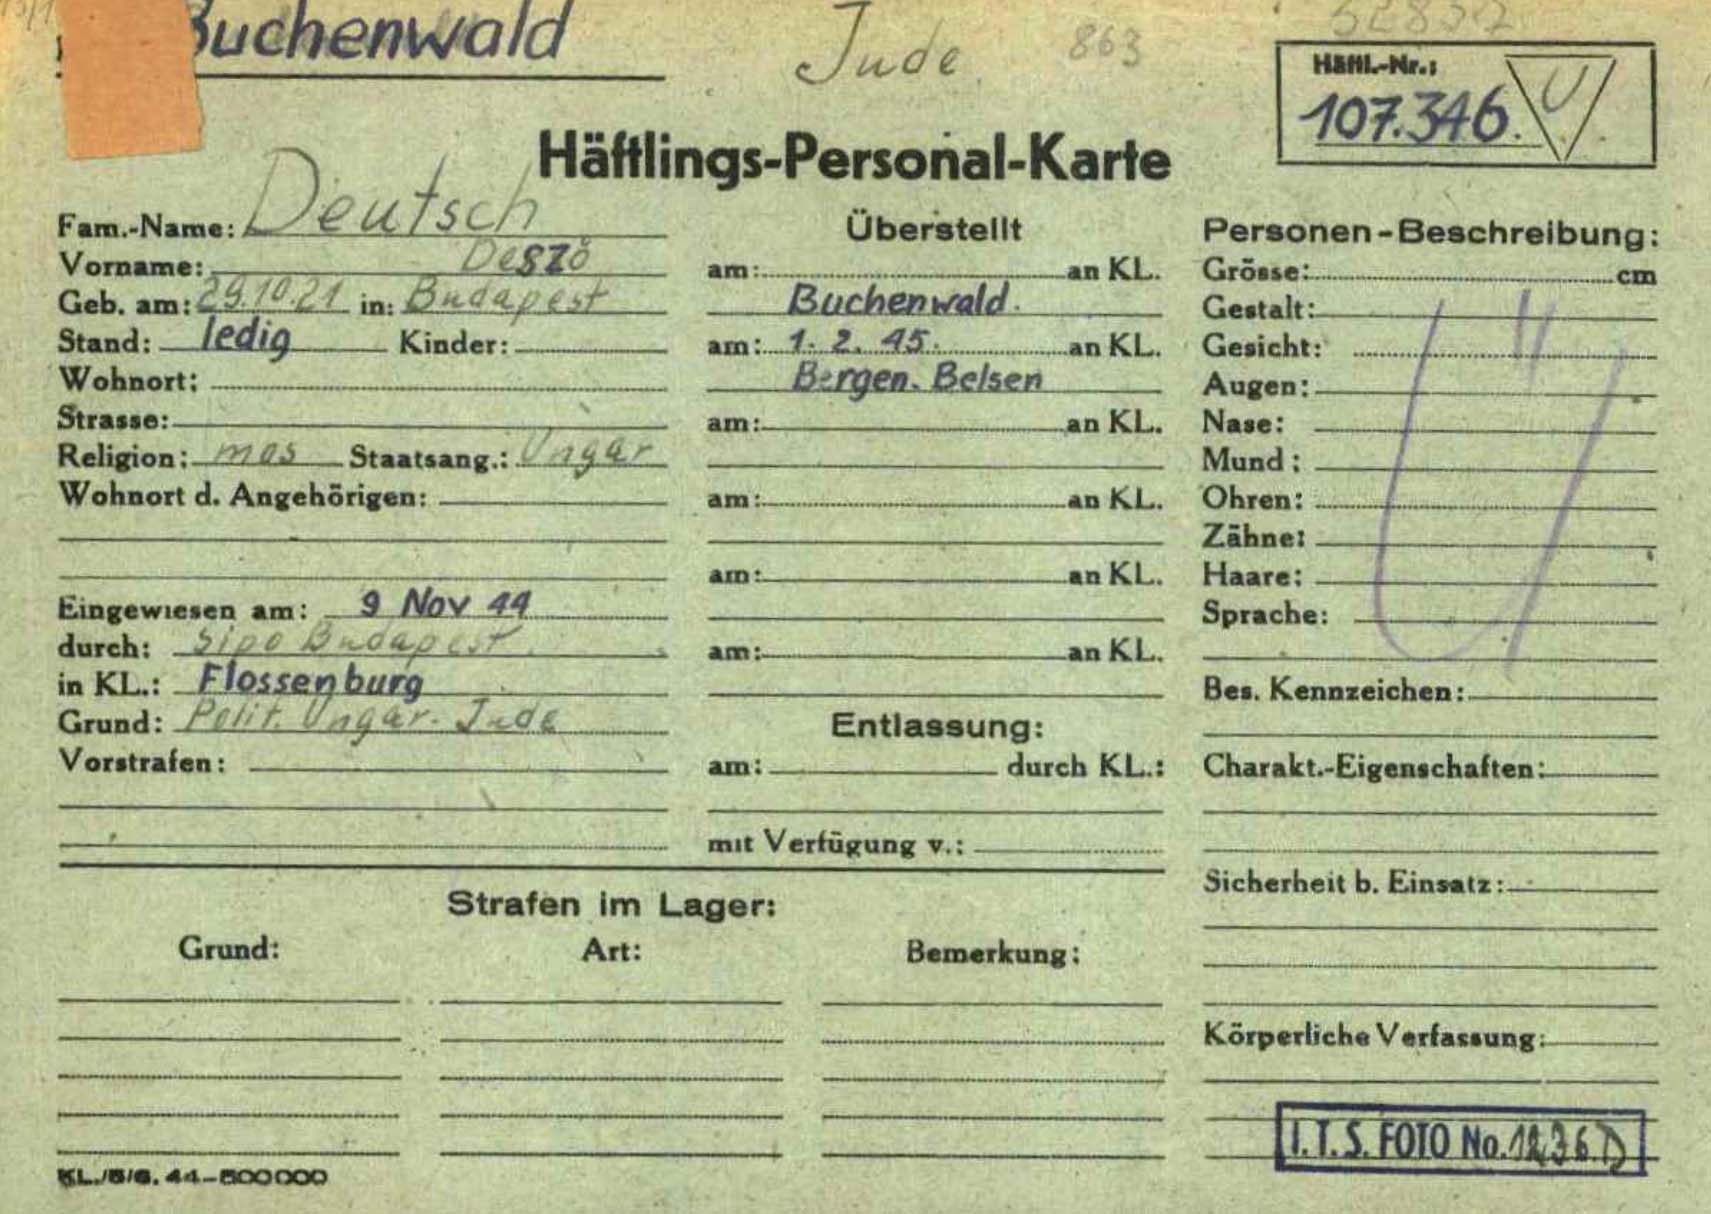 Buchenwald Jude 863
Häftl.-Nr.:
107.346. U
Häftlings-Personal-Karte
Fam.-Name: Deutsch
Vorname: Deszö
Geb. am: 29.10.21 in: Budapest
Stand: ledig Kinder:
Wohnort:
Strasse:
Religion: mos Staatsang.: Ungar
Wohnort d. Angehörigen:
Eingewiesen am: 9 Nov 44
durch: Sipo Budapest.
in KL.: Flossenburg
Grund: Polit. Ungar. Jude
Vorstrafen:
Überstellt
am: an KL.
Buchenwald.
am: 1. 2. 45. an KL.
Bergen. Belsen
am: an KL.
am: an KL.
am: an KL.
am: an KL.
Entlassung:
am: durch KL.:
mit Verfügung v.:
Personen-Beschreibung:
Grösse: cm
Gestalt:
Gesicht:
Augen:
Nase:
Mund:
Ohren:
Zähne:
Haare:
Sprache:
Ü
Bes. Kennzeichen:
Charakt.-Eigenschaften:
Sicherheit b. Einsatz:
Körperliche Verfassung:
Strafen im Lager:
Grund: Art: Bemerkung:
I.T.S. FOTO No.
KL./5/6. 44-500000